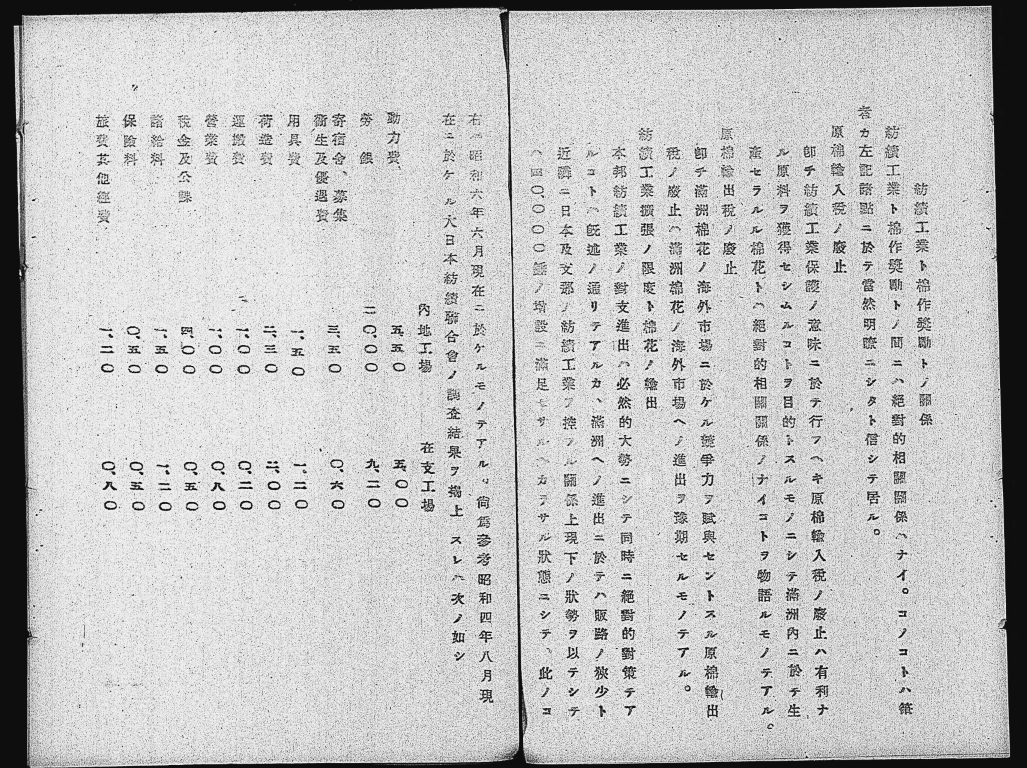 紡績工業ト棉作奬勵トノ關係
紡績工業ト棉作奬勵トノ間ニハ絕對的相關關係ハナイ。コノコトハ筆
者カ左記諸點ニ於テ當然明瞭ニシタト信シテ居ル。
原棉輸入稅ノ廢止
卽チ紡績工業保護ノ意味ニ於テ行フヘキ原棉輸入稅ノ廢止ハ有利ナ
ル原料ヲ獲得セシムルコトヲ目的トスルモノニシテ滿洲內ニ於テ生
產セラルル棉花トハ絕對的相關關係ノナイコトヲ物語ルモノテアル。
原棉輸出稅ノ廢止
卽チ滿洲棉花ノ海外市場ニ於ケル競爭力ヲ賦與セントスル原棉輸出
稅ノ廢止ハ滿洲棉花ノ海外市場ヘノ進出ヲ豫期セルモノテアル。
紡績工業擴張ノ限度ト棉花ノ輸出
本邦紡績工業ノ對支進出ハ必然的大勢ニシテ同時ニ絕對的對策テア
ルコトハ旣述ノ通リテアルカ、滿洲ヘノ進出ニ於テハ販路ノ狹少ト
近隣ニ日本及支那ノ紡績工業ヲ控フル關係上現下ノ狀勢ヲ以テシテ
ハ四〇、〇〇〇錘ノ增設ニ滿足セサルヘカラサル狀態ニシテ、此ノコ
右ハ昭和六年六月現在ニ於ケルモノテアル。尙爲參考昭和四年八月現
在ニ於ケル大日本紡績聯合會ノ調查結果ヲ揭上スレハ次ノ如シ
內地工場 在支工場
動力費 五、五〇 五、〇〇
勞銀 二〇、〇〇 九、二〇
寄宿舍、募集
衞生及優遇費 三、五〇 〇、六〇
用具費 一、五〇 一、二〇
荷造費 二、三〇 二、〇〇
運搬費 一、〇〇 〇、二〇
營業費 一、〇〇 〇、八〇
稅金及公課 四、〇〇 〇、五〇
諸給料 一、五〇 一、二〇
保險料 〇、五〇 〇、五〇
旅費其他經費 一、二〇 〇、八〇